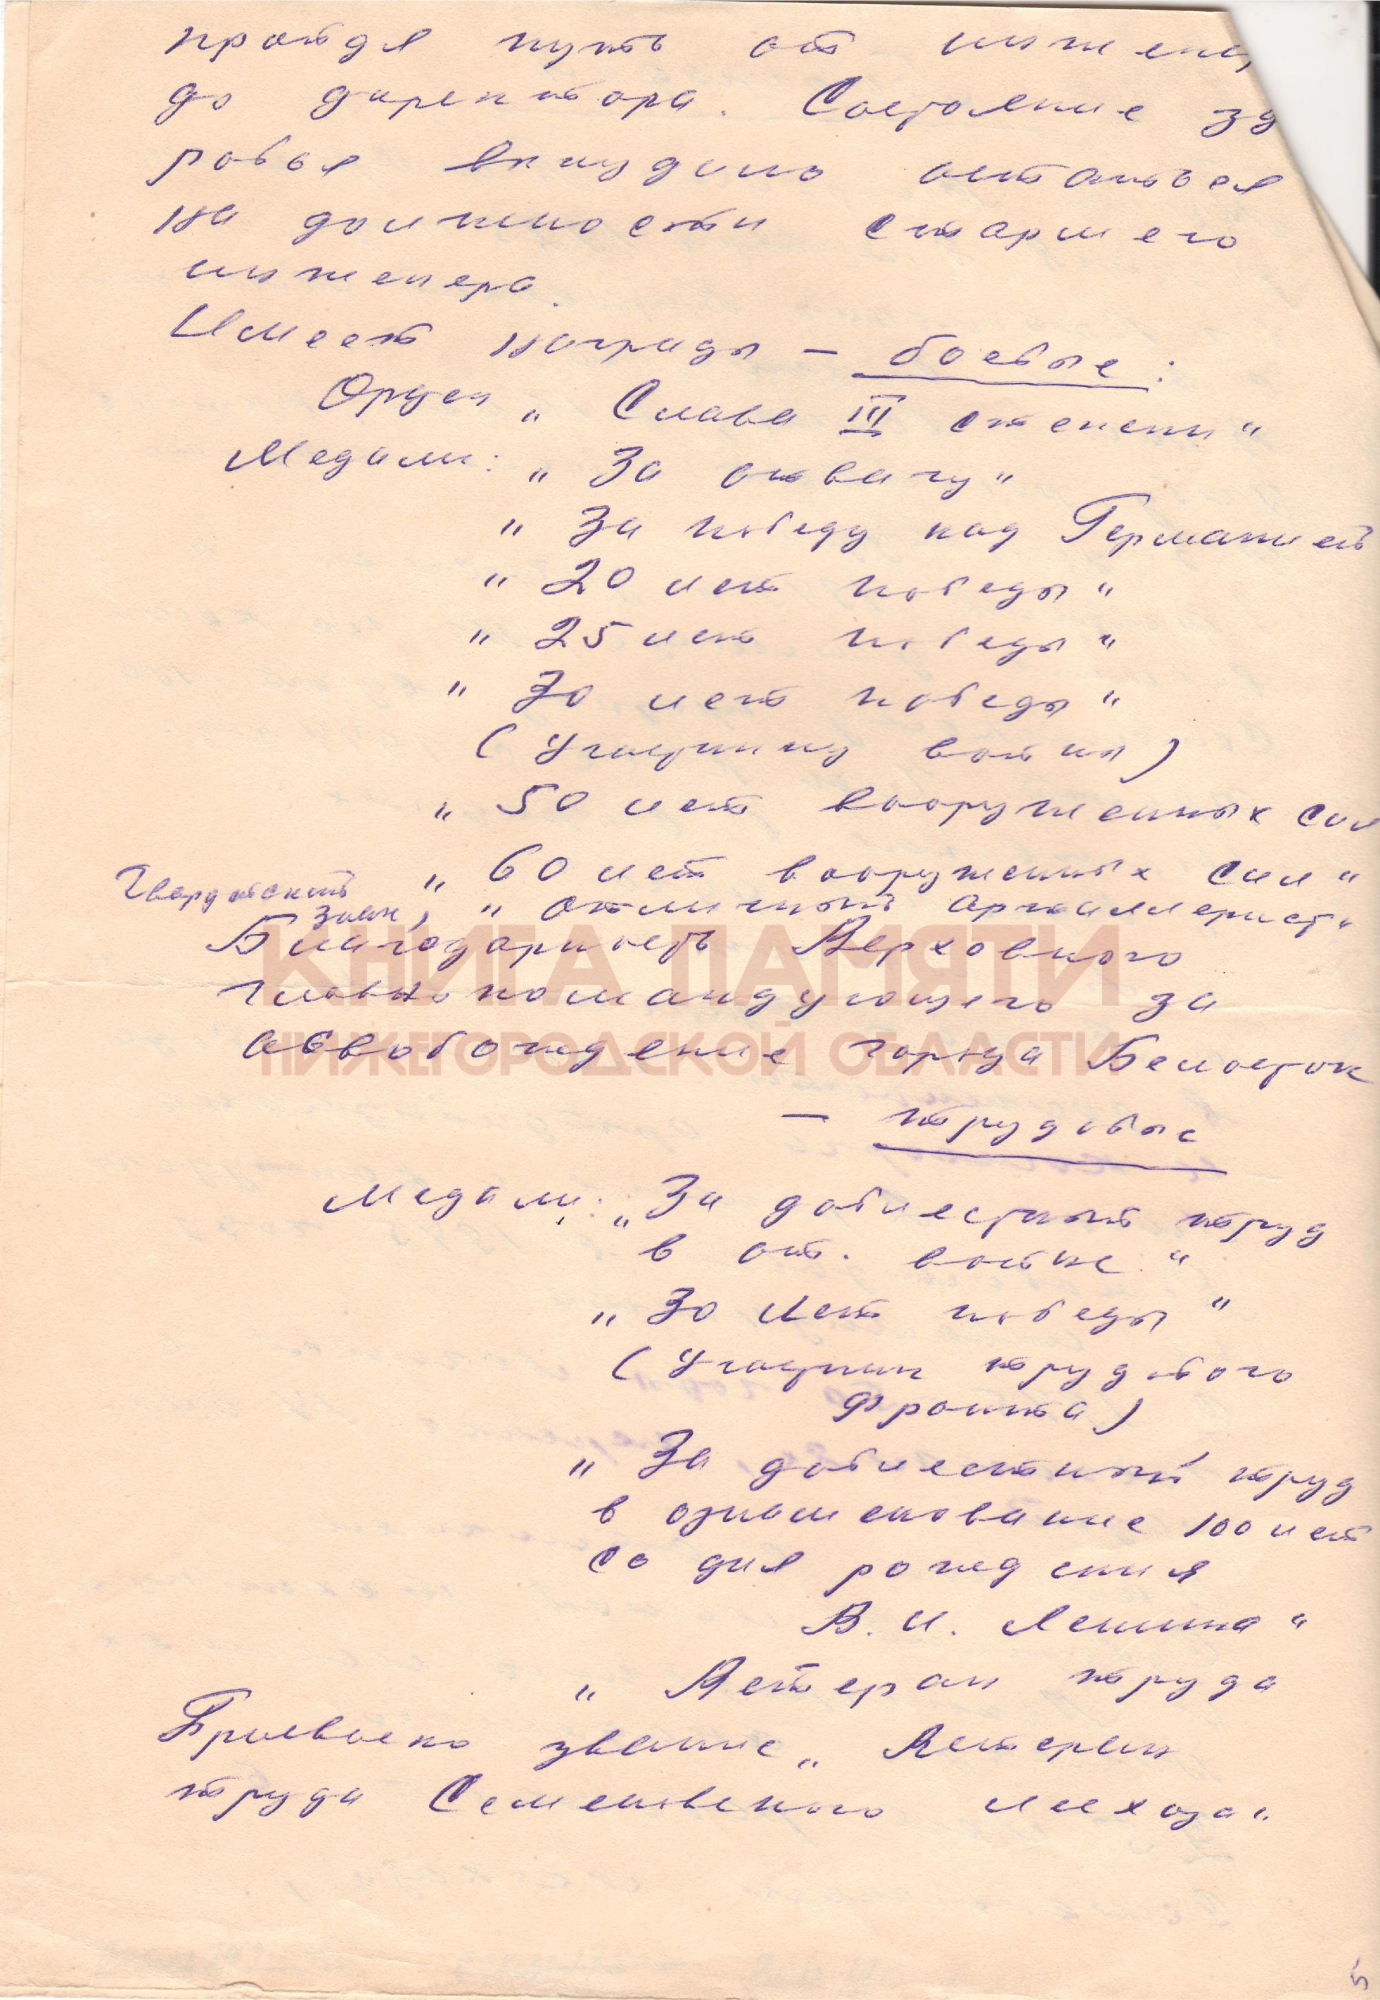 пройдя путь от инжене
до директора. Состояние здо
ровья вынудило остаться
на должности старшего
инженера.
Имеет награды – боевые:
Орден „ Слава III степени "
Медали: „ За отвагу "
" За победу над Германией
" 20 лет победы "
" 25 лет победы "
" 30 лет победы "
( Участнику войны )
" 50 лет вооруженных сил
„ 60 лет вооруженных сил "
Гвардейский знак, " отличный артиллерист "
Благодарность Верховного
главнокомандующего за
освобождение города Белосток
КНИГА ПАМЯТИ
НИЖЕГОРОДСКОЙ ОБЛАСТИ
– трудовые
Медали: „ За доблестный труд
в от. войне "
„ 30 лет победы "
( Участник трудового
фронта )
" За доблестный труд
в ознаменование 100 лет
со дня рождения
В. И. Ленина "
„ Ветеран труда
Присвоено звание „ Ветеран
труда Семеновского лесхоза".
5